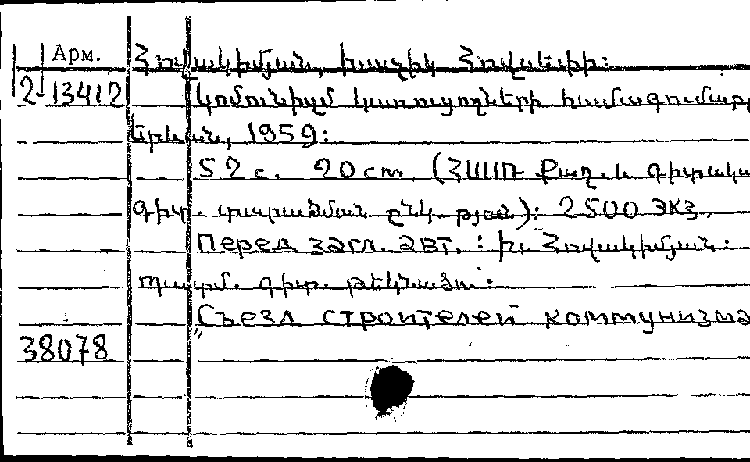 Арм.
Հովակիմյան, Խաչիկ Հովսեփի:
2-13412
Կոմունիզմ կառուցողների համագումարը
Երևան, 1959:
52 с. 20 cm. (ՀՍՍՌ Քաղ. և գիտական
գիտ. տարածման ընկ. ): 2500 экз.
Перед загл. авт. : Խ. Հովակիմյան.
պատմ. գիտ. թեկնածու:
Съезд строителей коммунизма
38078